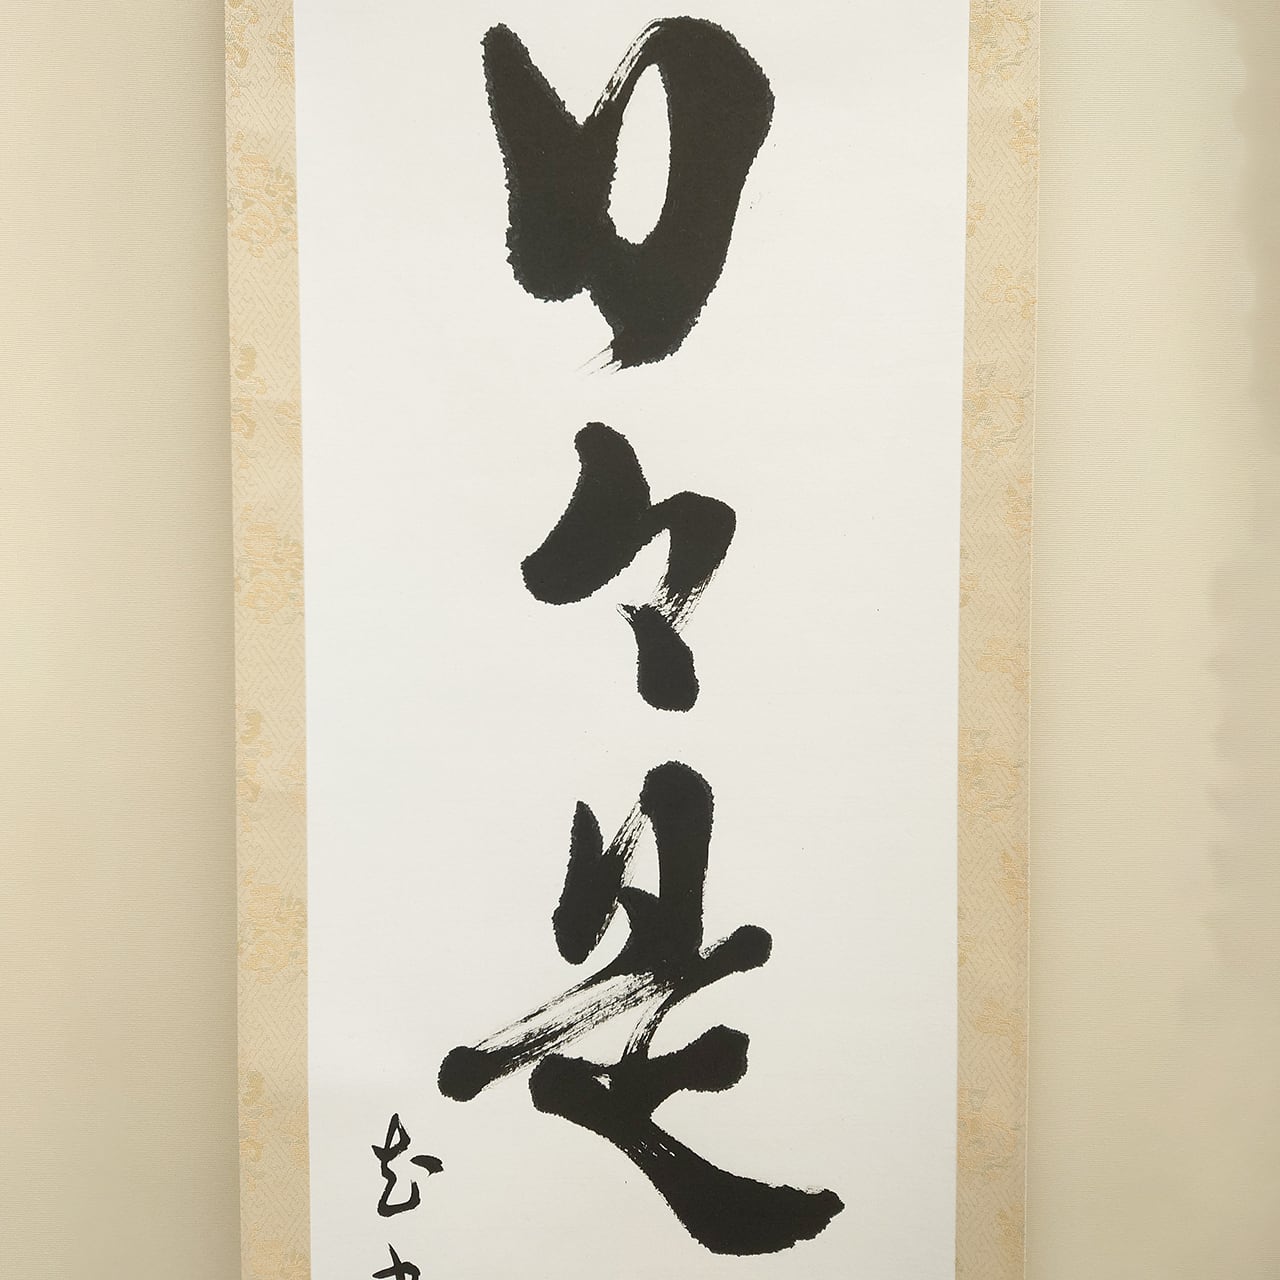 日々是